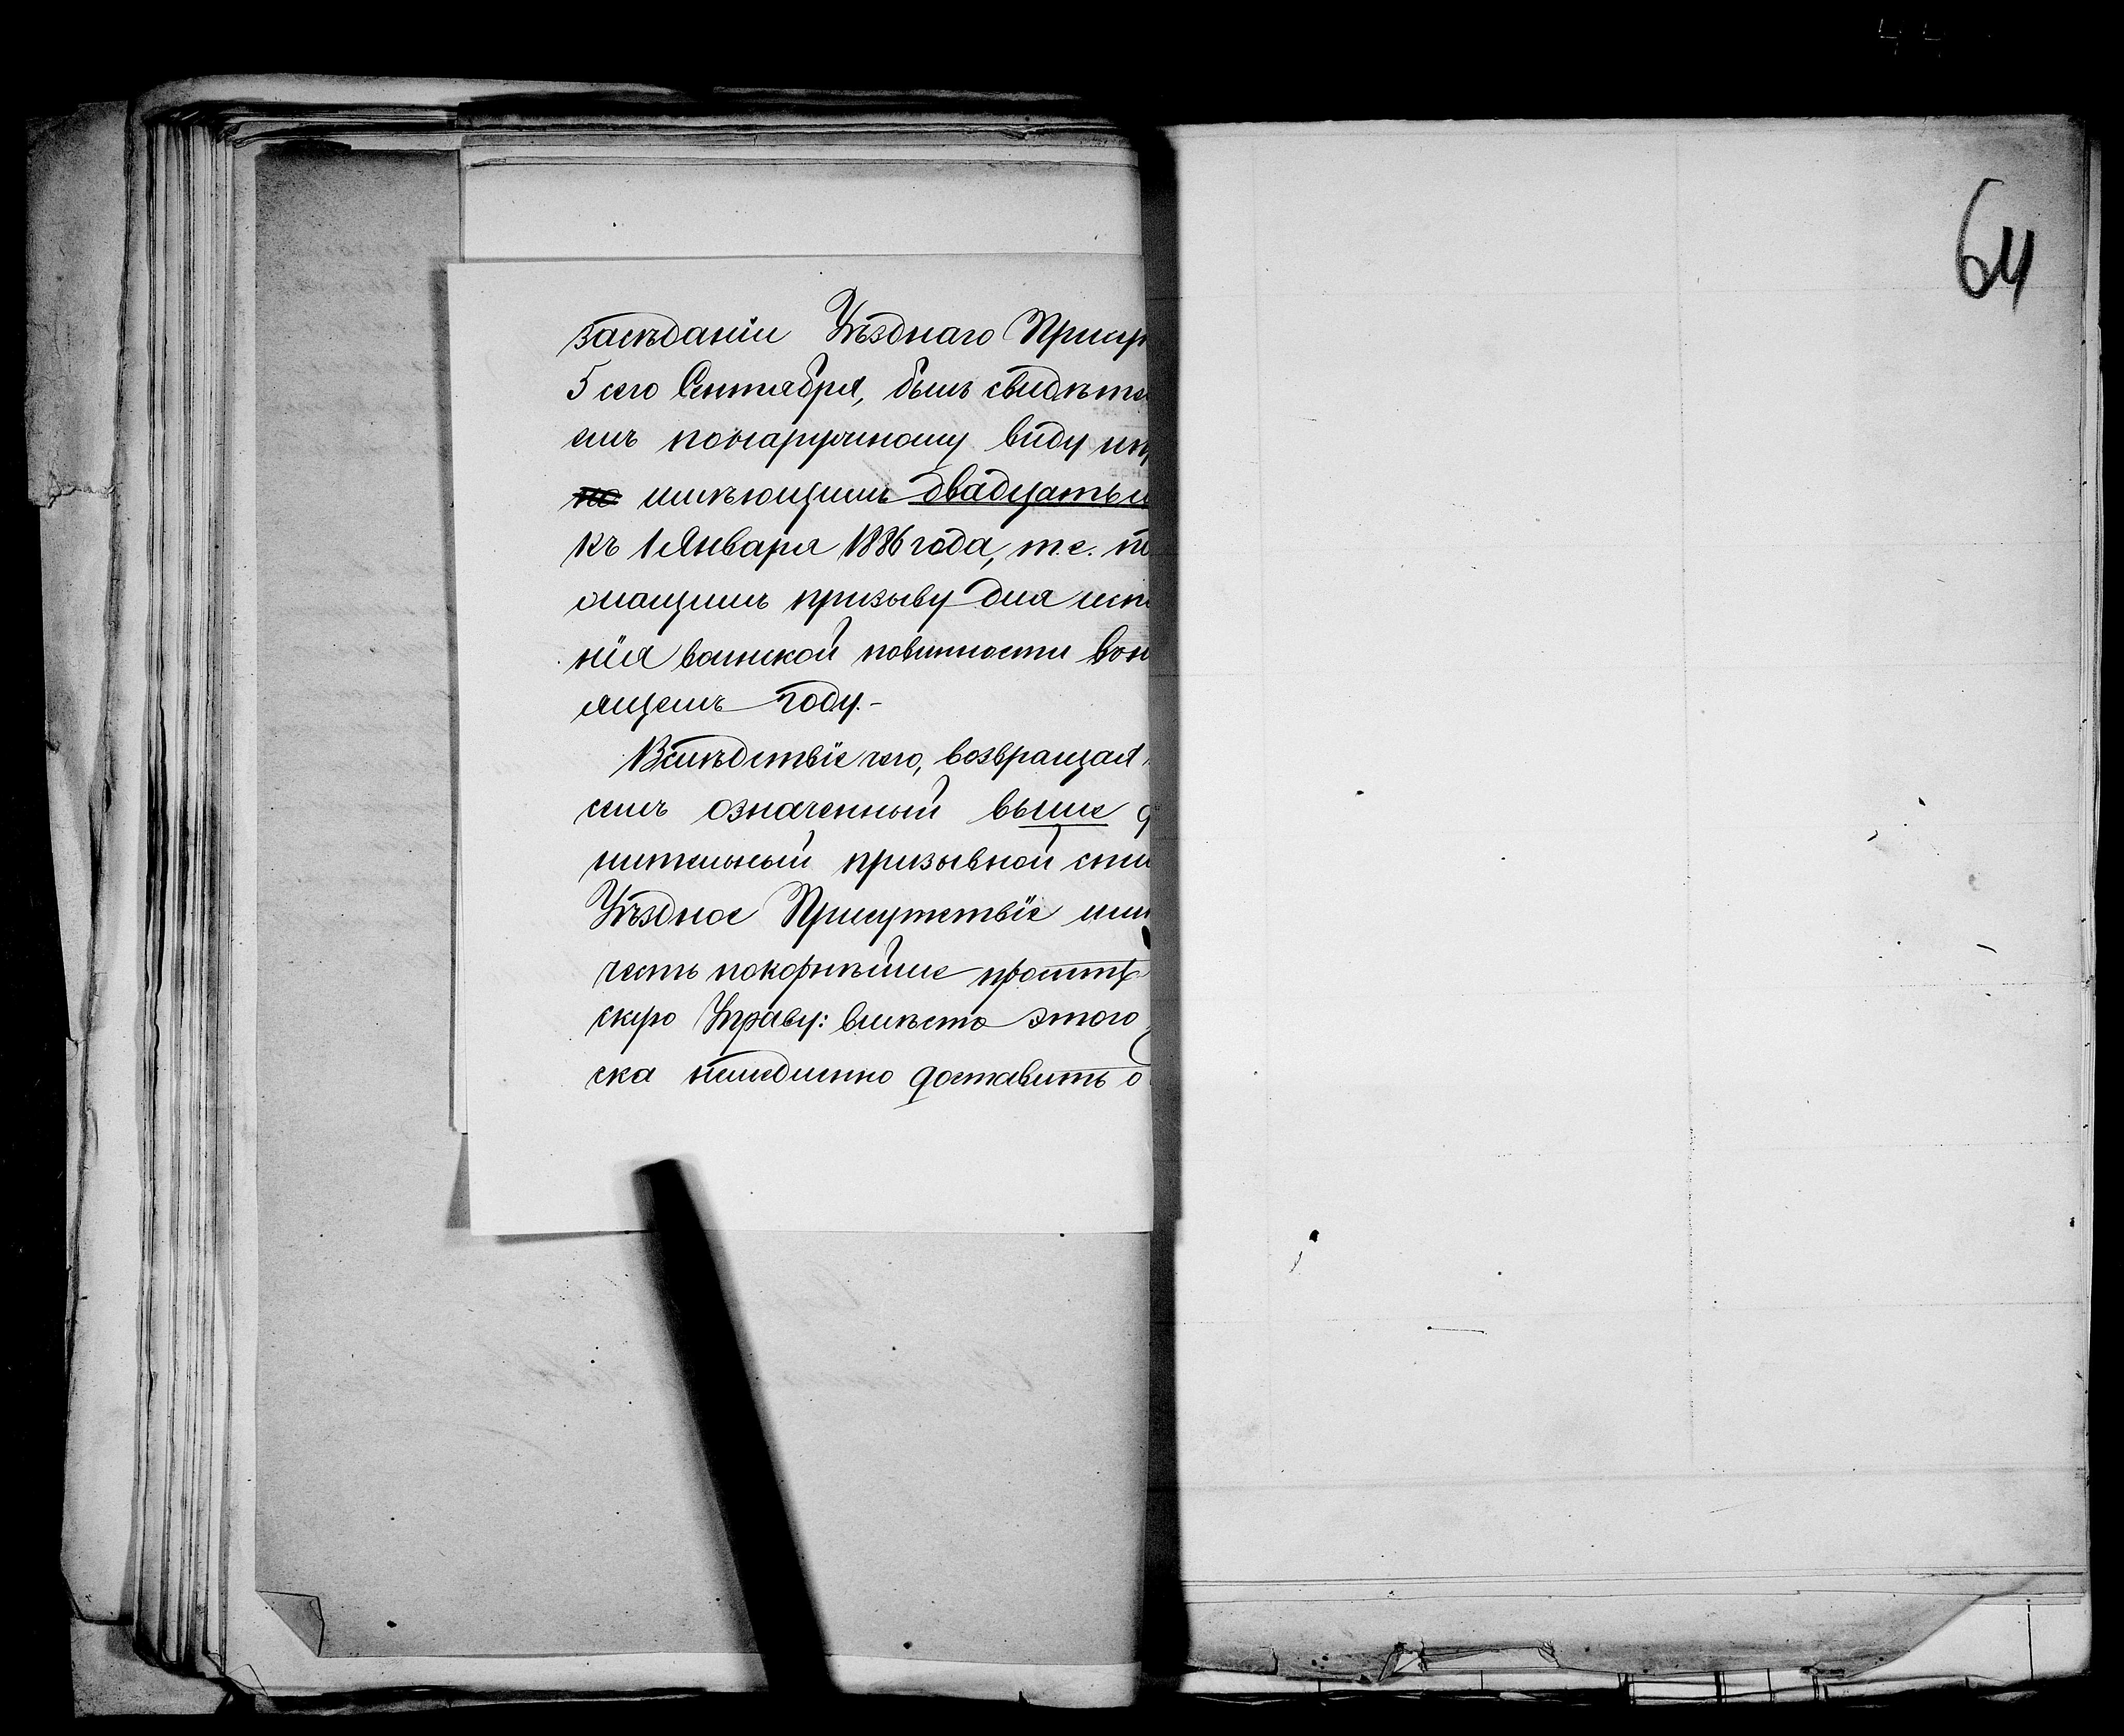 64
засѣданіи Уѣзднаго Присут
5 сего Сентября, былъ свидѣте
емъ понаружному виду
имѣющимъ двадцать
къ 1 Января 1886 года, т.е. п
лежащимъ призыву для исп
нія воинской повинности вон
лщемъ году.-
Вслѣдствіе чего, возвращая
семъ означенный выше д
нительный призывной спи
Уѣздное Присутствіе им
честь покорнѣйше проситъ
скую Управу: вмѣсто этого
ска немедленно доставить о